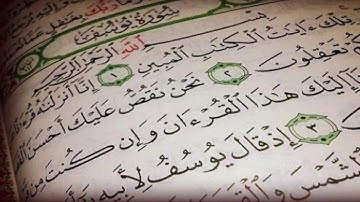 سُورَةُ يُوسُفَ
بِسْمِ اللَّهِ الرَّحْمَٰنِ الرَّحِيمِ
تِلْكَ ءَايَٰتُ الْكِتَٰبِ الْمُبِينِ ١ إِنَّا أَنزَلْنَٰهُ
تَعْقِلُونَ ٢ نَحْنُ نَقُصُّ عَلَيْكَ أَحْسَنَ
إِلَيْكَ هَٰذَا الْقُرْءَانَ وَإِن كُنتَ مِن
٣ إِذْ قَالَ يُوسُفُ لِأَبِيهِ
وَالشَّمْسَ وَالْقَمَرَ